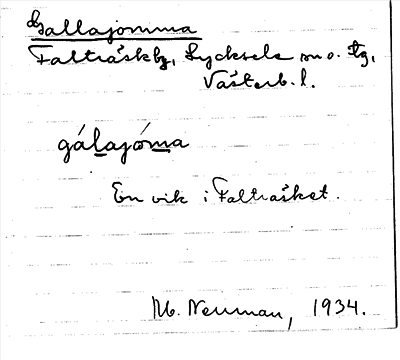 Gallajomma
Falträskby, Lycksele sn o. tg,
Västerb. l.
gálajóma
En vik i Falträsket.
M. Neuman, 1934.